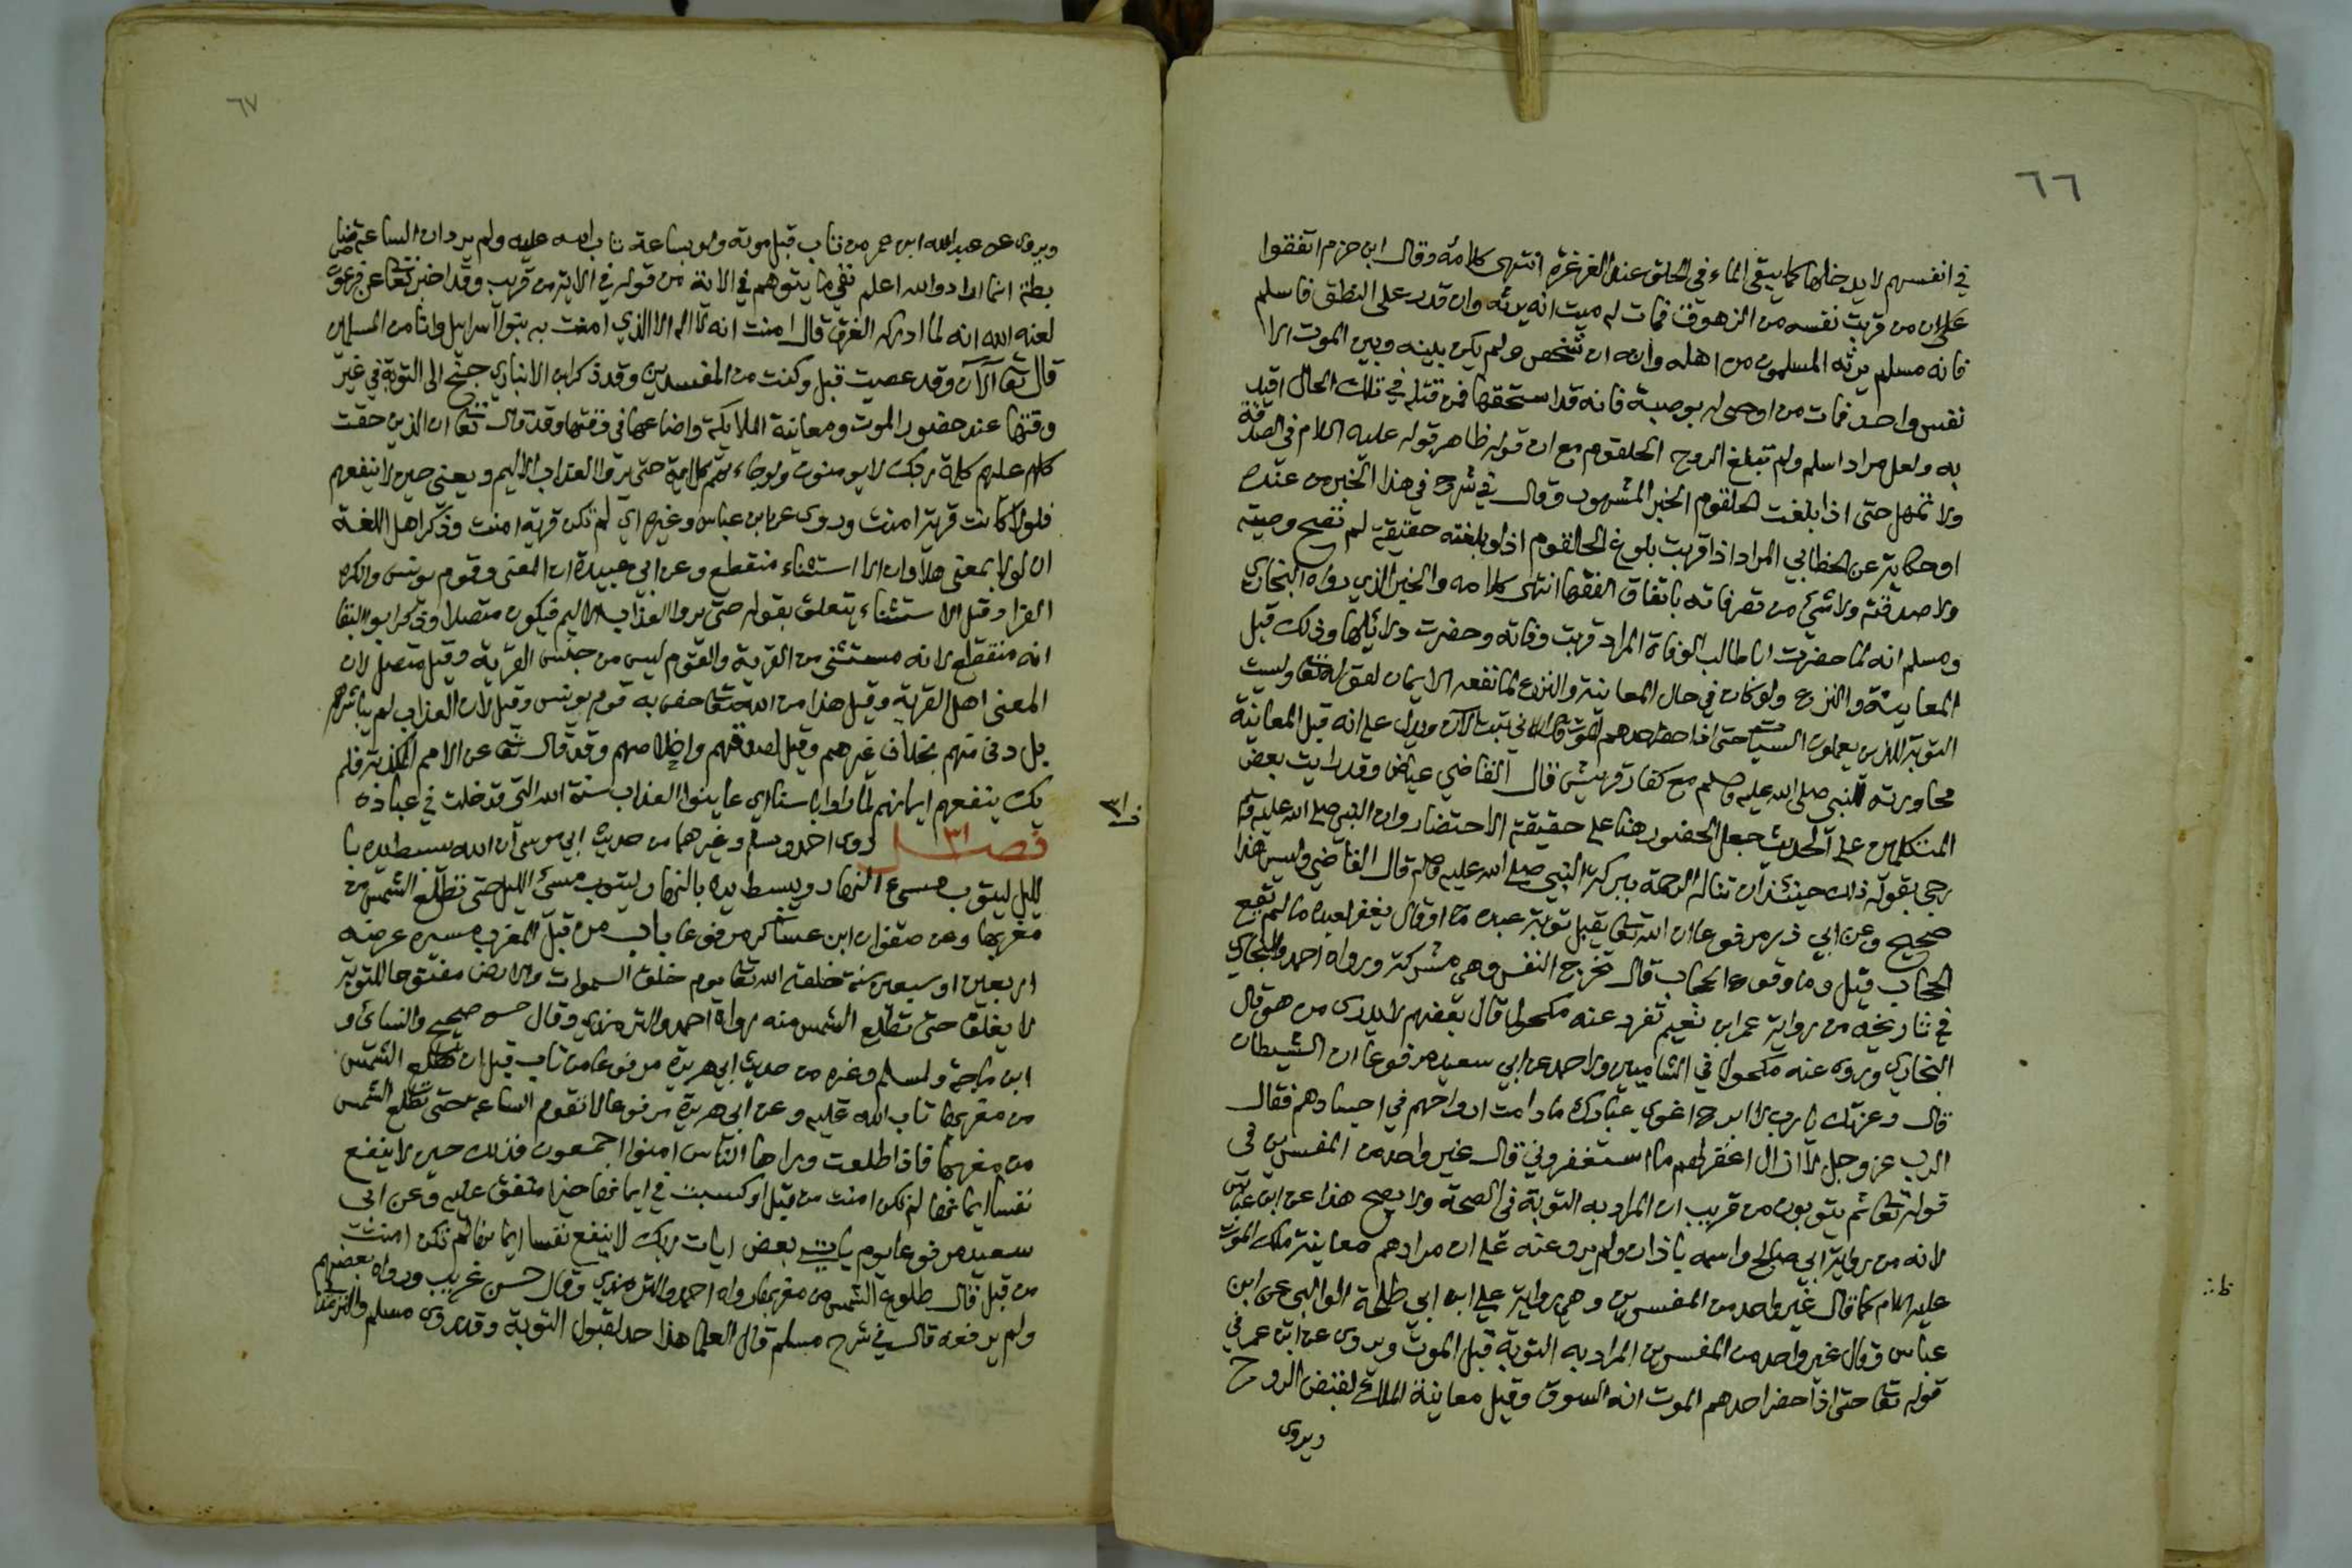 ٦٦
في انفسهم لا يدخلها كما يبقى الماء في الحلق عند الغرغرة انتهى كلامه وقال ابن حزم اتفقوا
على ان من قربت نفسه من الزهوق فمات له ميت انه يرثه وان قدر على النطق فاسلم
فانه مسلم يرثه المسلمون من اهله وانه ان شخص ولم يكن بينه وبين الموت الا
نفس واحد فمات من اوصى له بوصية فانه قد استحقها فمن قتله في تلك الحال اقيد
به ولعل مراد اسلم ولم تبلغ الروح الحلقوم مع ان قوله ظاهر قوله عليه السلام في الصدقة
ولا تمهل حتى اذا بلغت الحلقوم الخبر المشهور وقال في شرح في هذا الخبر من عنده
او حكاية عن الخطابي المراد اذا قربت بلوغ الحلقوم اذ لو بلغته حقيقة لم تصح وصيته
ولا صدقته ولا شيء من تصرفاته باتفاق الفقها انتهى كلامه والخبر الذي رواه البخاري
ومسلم انه لما حضرت ابا طالب الوفاة المراد قربت وفاته وحضرت دلائلها وذلك قبل
المعاينة والنزع ولو كان في حال المعاينة والنزع لما نفعه الايمان لقوله تعا وليست
التوبة للذين يعملون السيئات حتى اذا حضر احدهم الموت قال اني تبت الآن ويدل على انه قبل المعاينة
محاورته للنبي صلى الله عليه وسلم مع كفار قريش قال القاضي عياض وقد رايت بعض
المتكلمين على الحديث جعل الحضور هنا على حقيقة الاحتضار وان النبي صلى الله عليه وسلم
رجى بقوله ذلك حينئذ ان تناله الرحمة ببركة النبي صلى الله عليه وسلم قال القاضي وليس هذا
صحيح وعن ابي ذر مرفوعا ان الله تعا يقبل توبة عبده ما او قال يغفر لعبده ما لم تقع
الحجاب قيل وما وقوع الحجاب قال تخرج النفس وهي مشركة ورواه احمد والبخاري
في تاريخه من رواية عمر ابن نعيم تفرد عنه مكحول قال بعضهم لا يدرى من هو قال
البخاري وروى عنه مكحول في الشاميين ولاحمد عن ابي سعيد مرفوعا ان الشيطان
قال وعزتك يا رب لا ابرح اغوي عبادك ما دامت ارواحهم في اجسادهم فقال
الرب عز وجل لا ازال اغفر لهم ما استغفروني قال غير واحد من المفسرين في
قوله تعا ثم يتوبون من قريب ان المراد به التوبة في الصحة ولا يصح هذا عن ابن عباس
لانه من رواية ابي صالح واسمه باذان ولم يرو عنه على ان مرادهم معاينة ملك الموت
عليه السلام كما قال غير واحد من المفسرين وهي رواية علي ابن ابي طلحة الوالبي عن ابن
عباس وقال غير واحد من المفسرين المراد به التوبة قبل الموت ويروى عن ابن عمر في
قوله تعا حتى اذا حضر احدهم الموت انه السوق وقيل معاينة الملائكة لقبض الروح
ويروى
٦٧
ويروى عن عبد الله ابن عمر من تاب قبل موته ولو بساعة تاب الله عليه ولم يرد ان الساعة
انما اراد والله اعلم نفي ما يتوهم في الاية من قوله في الاية من قريب وقد اخبر تعا عن فرعون
لعنه الله انه لما ادركه الغرق قال امنت انه لا اله الا الذي امنت به بنوا اسرايل وانا من المسلمين
قال تعا آلآن وقد عصيت قبل وكنت من المفسدين وقد ذكر ابن الانباري جنح الى التوبة في غير
وقتها عند حضور الموت ومعاينة الملايكة واضاعها في وقتها وقد قال تعا ان الذين حقت
عليهم كلمة ربك لا يومنون ولو جاءتهم كل اية حتى يروا العذاب الاليم ويعنى حين لا ينفعهم
فلولا كانت قرية امنت وروى عن ابن عباس وغيره اي لم تكن قرية امنت وذكر اهل اللغة
ان لولا بمعنى هلا وان الا استثناء منقطع وعن ابي عبيدة ان المعنى وقوم يونس وانكره
الفرا وقيل الاستثناء يتعلق بقوله حتى يروا العذاب الاليم فيكون متصلا وذكر ابو البقا
انه منقطع لانه مستثنى من القرية والقوم ليس من جنس القرية وقيل متصل لان
المعنى اهل القرية وقيل هذا من الله تعا خص به قوم يونس وقيل لان العذاب لم يباشرهم
بل دنى منهم بخلاف غيرهم وقيل لصدقهم واخلاصهم وقد قال تعا عن الامم المكذبة فلم
يك ينفعهم ايمانهم لما راوا باسنا اي عاينوا العذاب سنة الله التي قد خلت في عباده
ف ٣١
فصل ٣١ روى احمد ومسلم وغيرهما من حديث ابي موسى ان الله يبسط يده با
لليل ليتوب مسيء النهار ويبسط يده بالنهار ليتوب مسئ الليل حتى تطلع الشمس من
مغربها وعن صفوان ابن عساكر مرفوعا باب من قبل المغرب مسيرة عرضه
اربعين او سبعين سنة خلقه الله تعا يوم خلق السموات والارض مفتوحا للتوبة
لا يغلق حتى تطلع الشمس منه رواه احمد والترمذي وقال حسن صحيح والنسائ و
ابن ماجة ولمسلم وغيره من حديث ابي هريرة مرفوعا من تاب قبل ان تطلع الشمس
من مغربها تاب الله عليه وعن ابي هريرة مرفوعا لا تقوم الساعة حتى تطلع الشمس
من مغربها فاذا طلعت وراها الناس امنوا اجمعون فذلك حين لا ينفع
نفسا ايمانها لم تكن امنت من قبل او كسبت في ايمانها خيرا متفق عليه وعن ابي
سعيد مرفوعا يوم ياتي بعض ايات ربك لا ينفع نفسا ايمانها لم تكن امنت
من قبل قال طلوع الشمس من مغربها رواه احمد والترمذي وقال حسن غريب ورواه بعضهم
ولم يرفعه قال في شرح مسلم قال العلما هذا حد لقبول التوبة وقد روى مسلم والترمذي